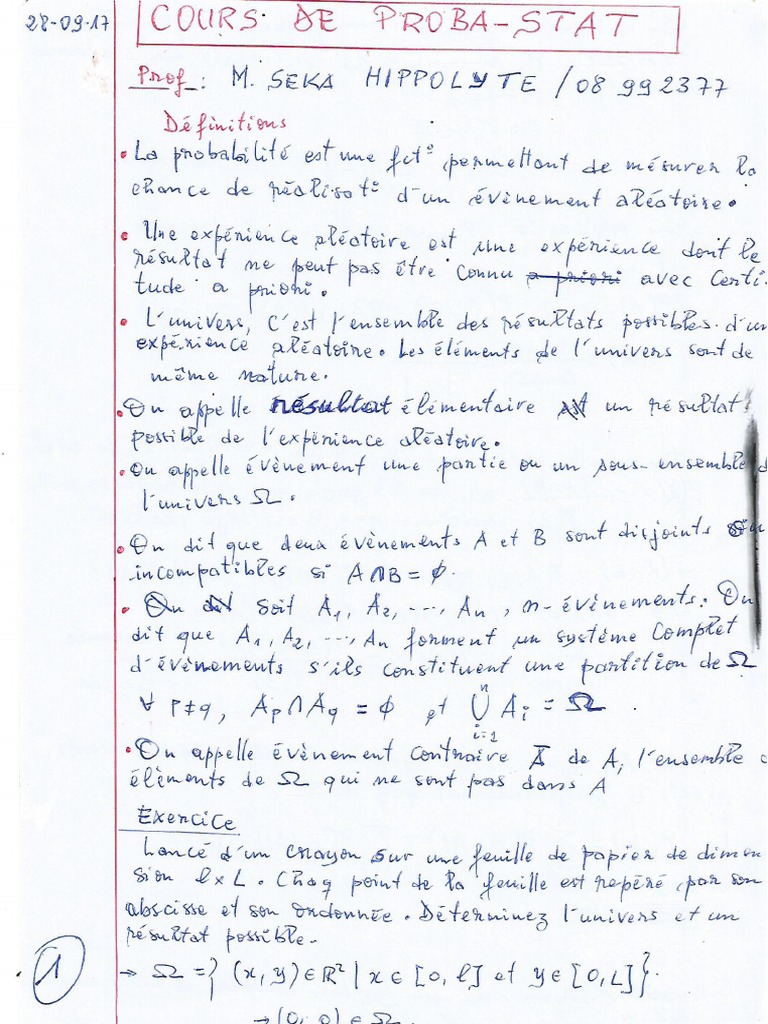 28-09-17
COURS DE PROBA-STAT
Prof : M. SEKA HIPPOLYTE / 08 99 23 77
Définitions
• La probabilité est une fct° permettant de mésurer la
chance de réalisat° d'un évènement aléatoire.
• Une expérience aléatoire est une expérience dont le
résultat ne peut pas être connu a priori avec certi-
tude a priori.
• L'univers, c'est l'ensemble des résultats possibles d'un
expérience aléatoire. Les éléments de l'univers sont de
même nature.
• On appelle résultat élémentaire un résultat
possible de l'expérience aléatoire.
• On appelle évènement une partie ou un sous-ensemble d
l'univers Ω.
• On dit que deux évènements A et B sont disjoints
incompatibles si A∩B = ∅.
• On dit Soit A₁, A₂, ..., An, n-évènements. On
dit que A₁, A₂, ..., An forment un système complet
d'évènements s'ils constituent une partition de Ω
∀ p≠q, Ap∩Aq = ∅ et ⋃ⁿᵢ₌₁ Ai = Ω.
• On appelle évènement contraire Ā de A, l'ensemble d
éléments de Ω qui ne sont pas dans A
Exercice
Lancé d'un crayon sur une feuille de papier de dimen
sion l×L. Chaq point de la feuille est repéré par son
abscisse et son ordonnée. Déterminez l'univers et un
résultat possible.
→ Ω = { (x, y) ∈ ℝ² | x ∈ [0, l] et y ∈ [0, L] }.
→ (0, 0) ∈ Ω.
1